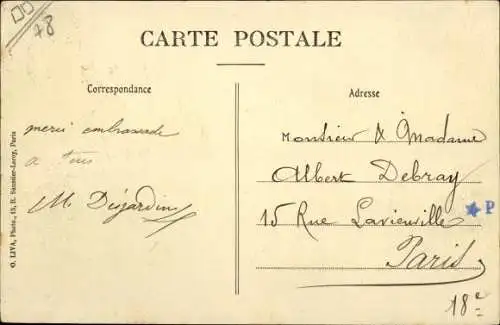 78
CARTE POSTALE
Correspondance
merci embrassade
a tous
M. Desjardins
Adresse
Monsieur & Madame
Albert Debray
15 Rue Lavieuville
Paris
18e
P
O. LIVA, Photo., 13, R. Saunier-Leroy, Paris